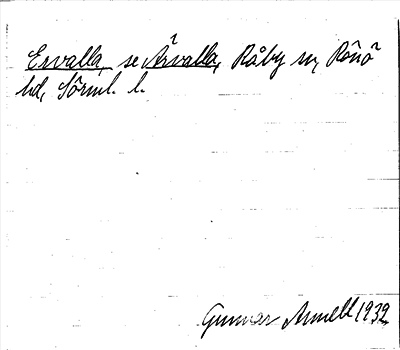 Ervalla, se Ärvalla, Råby sn, Rönö
hd, Sörml. l.
Gunnar Annell 1932